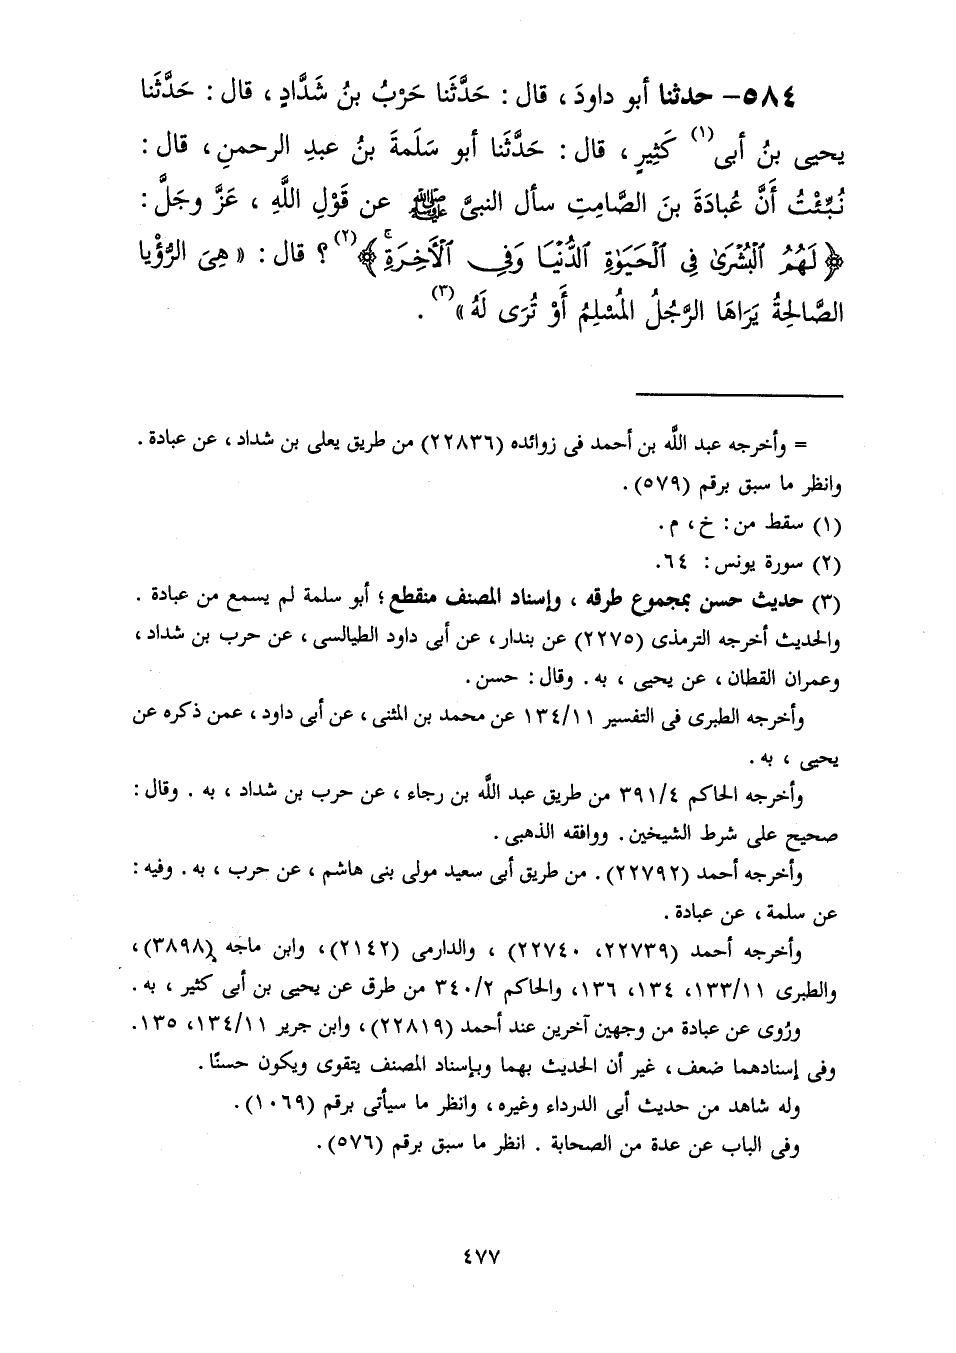 ٥٨٤- حدثنا أبو داودَ ، قال : حَدَّثَنا حَرْبُ بنُ شَدَّادٍ ، قال : حَدَّثَنا
يحيى بنُ أبى(١) كَثِيرٍ ، قال : حَدَّثَنا أبو سَلَمةَ بنُ عبدِ الرحمنِ ، قال :
نُبِّئْتُ أَنَّ عُبادَةَ بنَ الصَّامِتِ سأل النبىَّ ﷺ عن قَوْلِ اللَّهِ ، عَزَّ وجَلَّ :
﴿ لَهُمُ ٱلْبُشْرَىٰ فِى ٱلْحَيَوٰةِ ٱلدُّنْيَا وَفِى ٱلْأَخِرَةِۚ ﴾(٢) ؟ قال : « هِىَ الرُّؤْيا
الصَّالِحَةُ يَرَاهَا الرَّجُلُ المُسْلِمُ أَوْ تُرَى لَهُ »(٣) .
= وأخرجه عبد اللَّه بن أحمد فى زوائده (٢٢٨٣٦) من طريق يعلى بن شداد ، عن عبادة .
وانظر ما سبق برقم (٥٧٩).
(١) سقط من : خ ، م .
(٢) سورة يونس : ٦٤.
(٣) حديث حسن بمجموع طرقه ، وإسناد المصنف منقطع ؛ أبو سلمة لم يسمع من عبادة .
والحديث أخرجه الترمذى (٢٢٧٥) عن بندار ، عن أبى داود الطيالسى ، عن حرب بن شداد ،
وعمران القطان ، عن يحيى ، به . وقال : حسن .
وأخرجه الطبرى فى التفسير ١٣٤/١١ عن محمد بن المثنى ، عن أبى داود ، عمن ذكره عن
يحيى ، به .
وأخرجه الحاكم ٣٩١/٤ من طريق عبد اللَّه بن رجاء ، عن حرب بن شداد ، به . وقال :
صحيح على شرط الشيخين . ووافقه الذهبى .
وأخرجه أحمد (٢٢٧٩٢) . من طريق أبى سعيد مولى بنى هاشم ، عن حرب ، به . وفيه :
عن سلمة ، عن عبادة .
وأخرجه أحمد (٢٢٧٣٩، ٢٢٧٤٠) ، والدارمى (٢١٤٢)، وابن ماجه (٣٨٩٨)،
والطبرى ١٣٣/١١، ١٣٤، ١٣٦، والحاكم ٣٤٠/٢ من طرق عن يحيى بن أبى كثير ، به .
ورُوى عن عبادة من وجهين آخرين عند أحمد (٢٢٨١٩)، وابن جرير ١٣٤/١١، ١٣٥.
وفى إسنادهما ضعف ، غير أن الحديث بهما وبإسناد المصنف يتقوى ويكون حسنًا .
وله شاهد من حديث أبى الدرداء وغيره ، وانظر ما سيأتى برقم (١٠٦٩).
وفى الباب عن عدة من الصحابة . انظر ما سبق برقم (٥٧٦).
٤٧٧